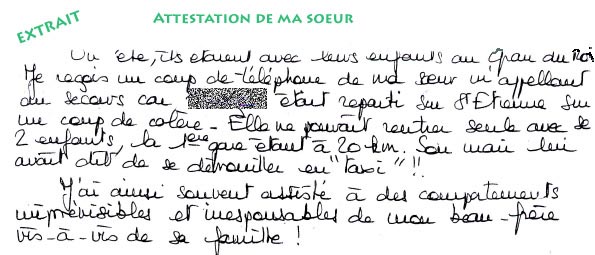 EXTRAIT
ATTESTATION DE MA SOEUR
Un été, ils étaient avec leurs enfants au Grau du Roi
Je reçois un coup de téléphone de ma sœur m'appellant
au secours car étant reparti sur St Etienne sur
un coup de colère - Elle ne pouvait rentrer seule avec se
2 enfants, la 1ère gare étant à 20 km. Son mari lui
avait dit de se débrouiller en "taxi" !!
J'ai ainsi souvent assisté à des comportements
imprévisibles et inesponsables de mon beau-frère
vis-à-vis de sa famille !